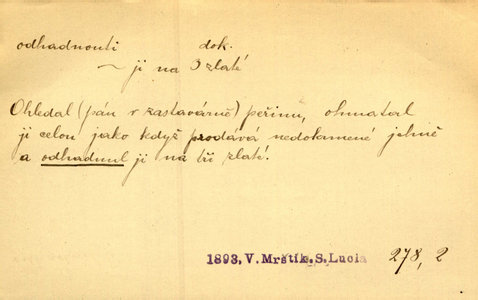 odhadnouti dok.
~ ji na 3 zlaté
Ohledal (pán v zastavárně) peřinu, ohmatal
ji celou jako když prodává nedokrmené jehně
a odhadnul ji na tři zlaté.
1893, V. Mrštík, S. Lucia 278, 2